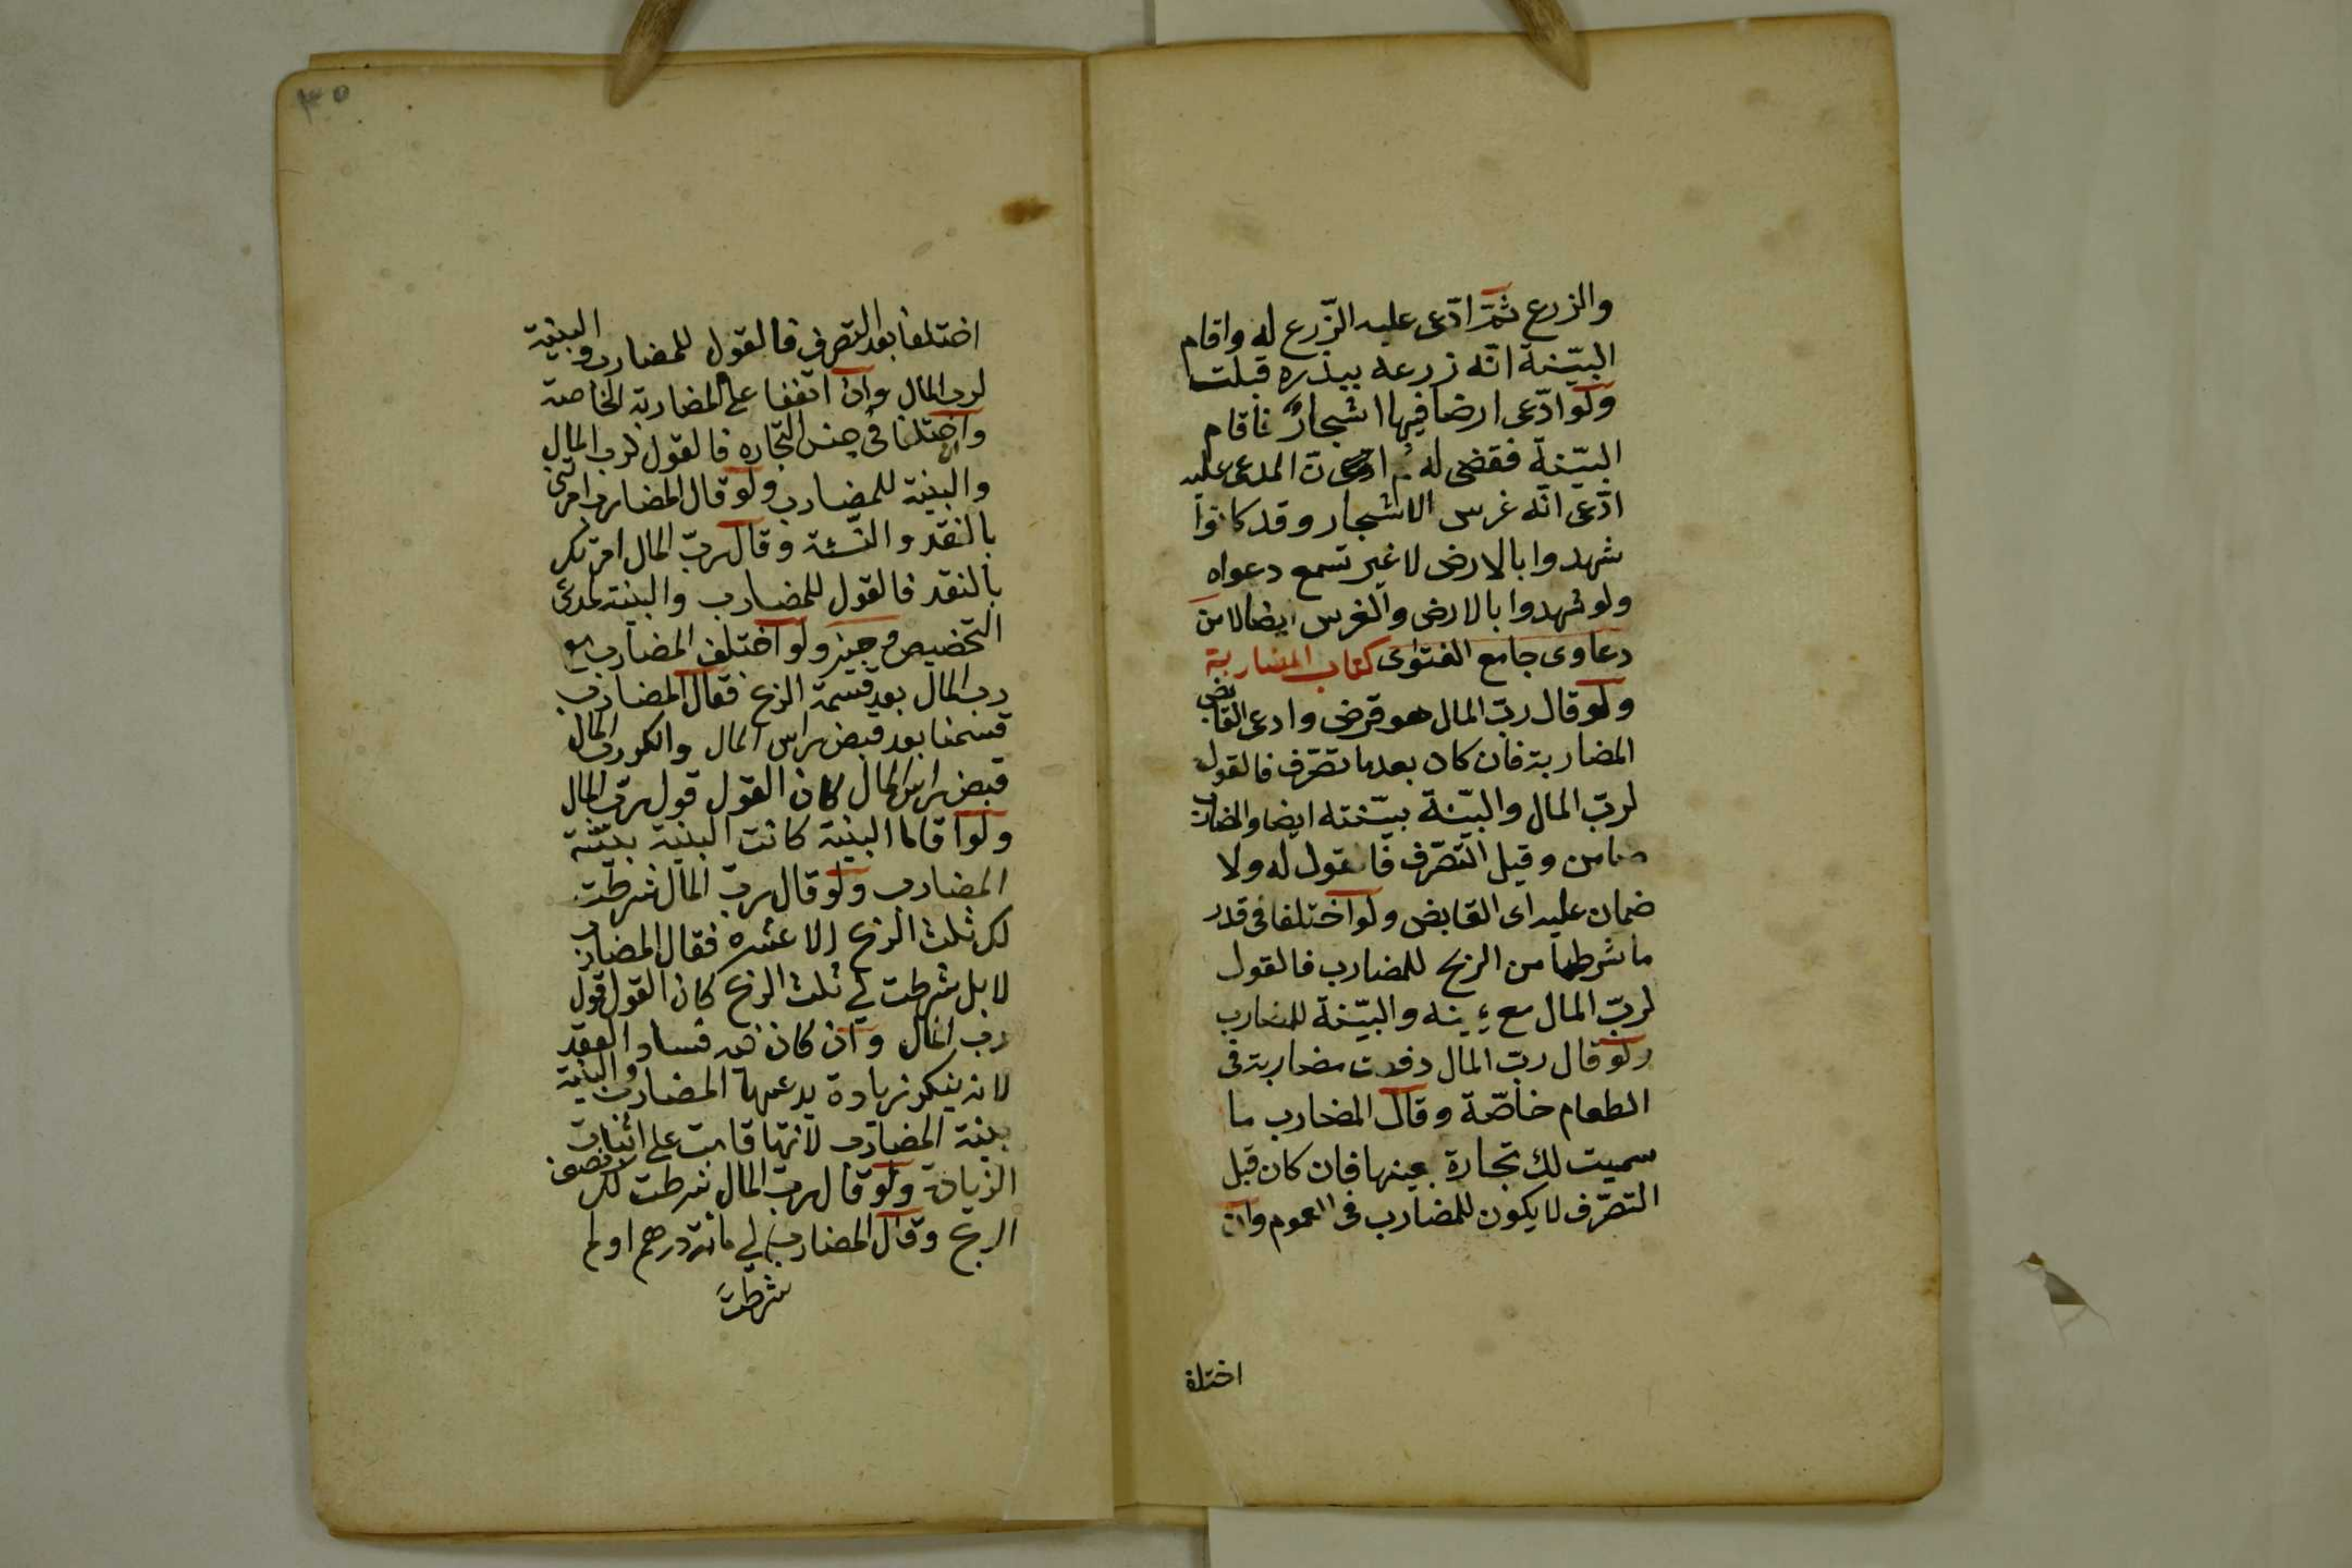 والزرع ثمّ ادّعى عليه الزّرع له واقام
البيّنة انّه زرعه ببذره قبلت
ولو ادّعى ارضا فيها اشجارٌ فاقام
البيّنة فقضى له ثم ان المدعى عليه
ادّعى انّه غرس الاشجار وقد كانوا
شهدوا بالارض لا غير تسمع دعواه
ولو شهدوا بالارض والغرس ايضا لا من
دعاوى جامع الفتوى كتاب المضاربة
ولو قال ربّ المال هو قرض وادعى القابض
المضاربة فان كان بعد ما تصّرف فالقول
لربّ المال والبيّنة بيّنته ايضا والمضارب
ضامن وقبل التصّرف فالقول له ولا
ضمان عليه اى القابض ولو اختلفا فى قدر
ما شرطها من الربح للمضارب فالقول
لربّ المال مع يمينه والبيّنة للمضارب
ولو قال ربّ المال دفعت مضاربة فى
الطعام خاصّة وقال المضارب ما
سميت لك تجارة بعينها فان كان قبل
التصّرف لا يكون للمضارب فى العموم وان
اختلفا
٣٥
اختلفا بعد التصرف فالقول للمضارب والبينة
لرب المال وان اتفقا على المضاربة الخاصة
واختلفا فى جنس التجاره فالقول لرب المال
والبينة للمضارب ولو قال المضارب امرتنى
بالنقد والنّسئة وقال ربّ المال امرتك
بالنقد فالقول للمضارب والبينة لمدعى
التخصيص وجيز ولو اختلف المضارب مع
رب المال بعد قسمة الربح فقال المضارب
قسمنا بعد قبض راس المال وانكر رب المال
قبض راس المال كان القول قول ربّ المال
ولو اقاما البينة كانت البينة بيّنة
المضارب ولو قال ربّ المال شرطت
لك ثلث الربح الا عشره فقال المضارب
لا بل شرطت لي ثلث الربح كان القول قول
رب المال وان كان فيه فساد العقد
لانه ينكر زيادة يدعيها المضارب والبينة
بينة المضارب لانها قامت على اثبات
الزيادة ولو قال ربّ المال شرطت لك نصف
الربح وقال المضارب لي مائة درهم او لم
شرطت